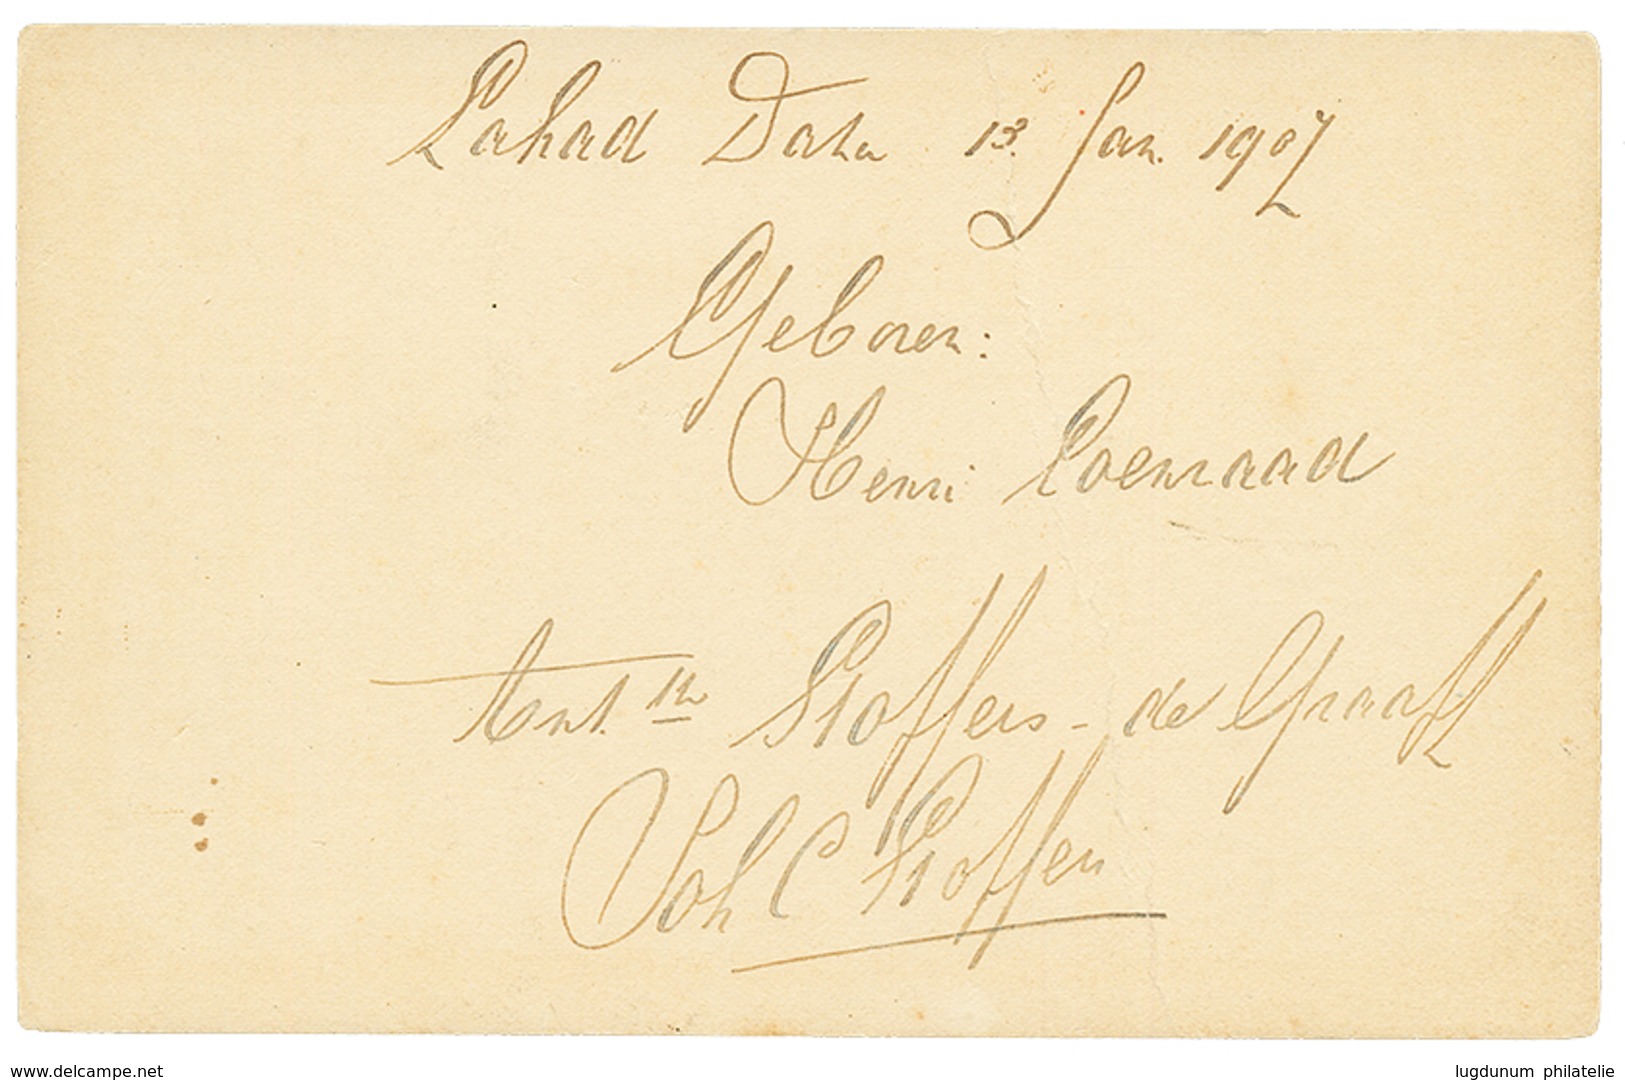 Lahad Datu 13. Jan. 1907
Geboren:
Henri Coenraad
Ant.
Stoffers - de Graaff
Joh C Stoffers
www.delcampe.net
lugdunum philatelie